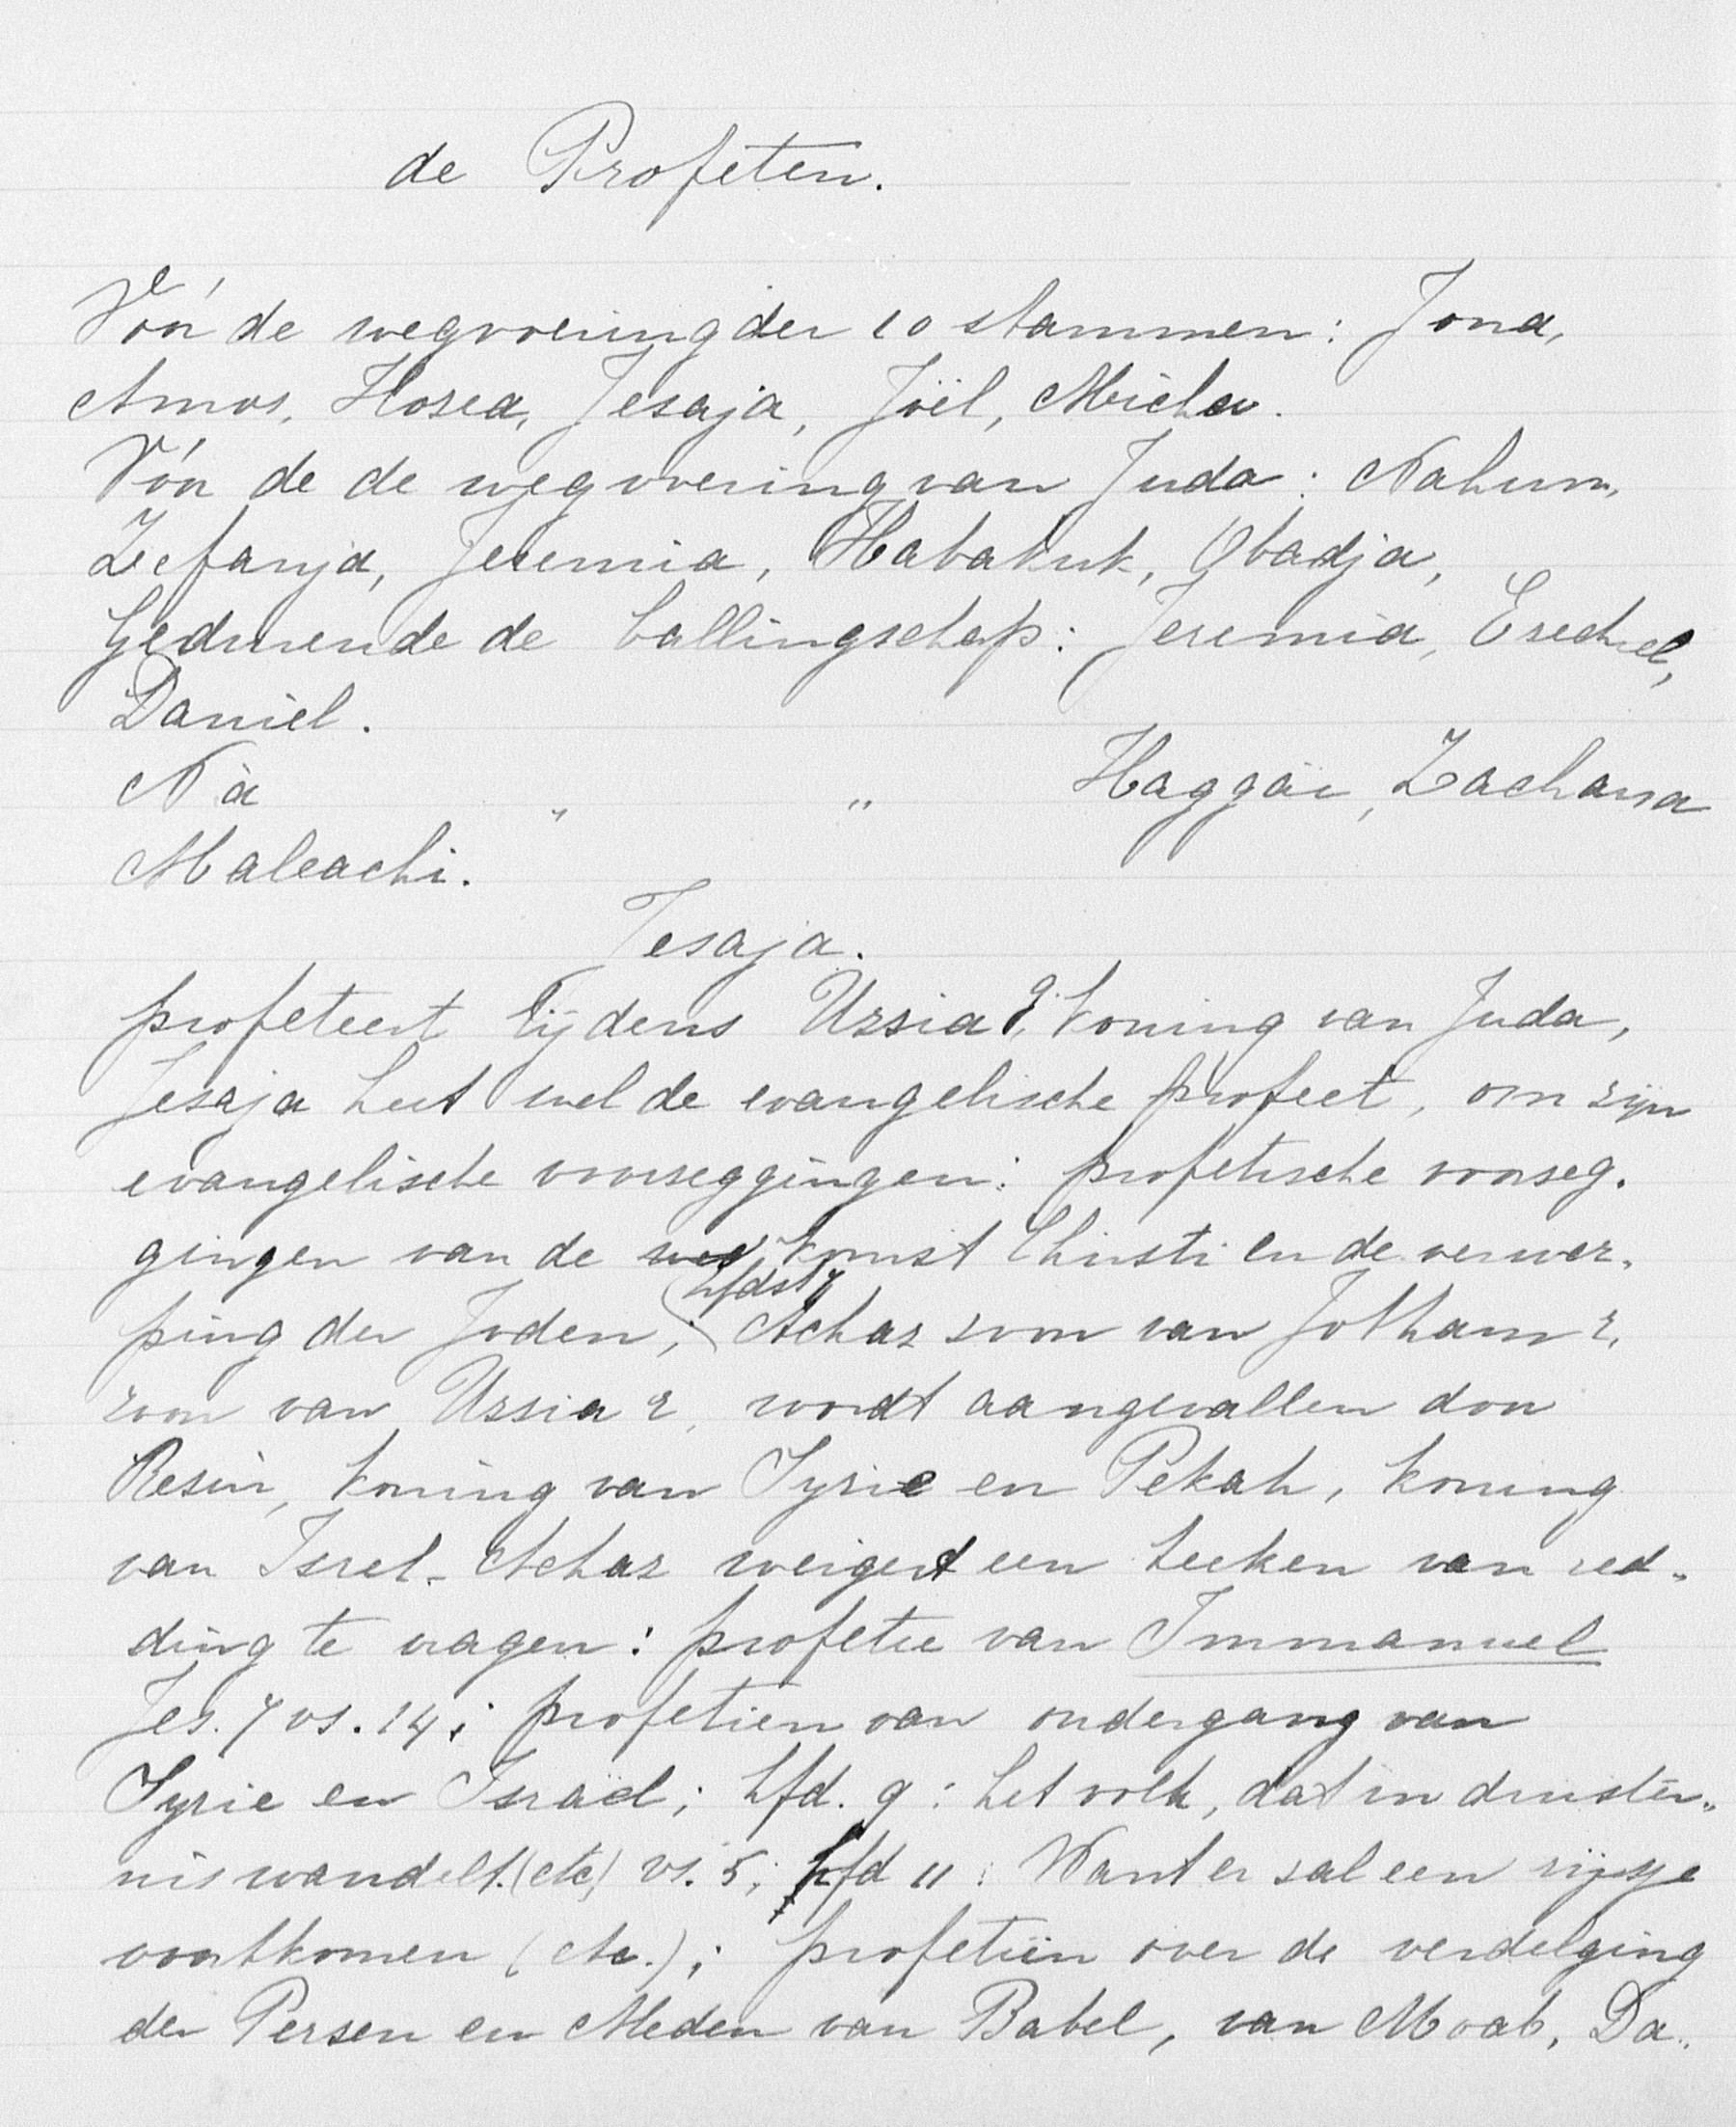 de Profeten.
Vóór de wegvoering der 10 stammen: Jona,
Amos, Hosea, Jesaja, Joël, Micha.
Vóór de de wegvoering van Juda: Nahum,
Zefanja, Jeremia, Habakuk, Obadja,
Gedurende de ballingschap: Jeremia, Ezechiel,
Daniel.
Nà " " Haggaï, Zacharia
Maleachi.
Jesaja.
profeteert tijdens Ussia, koning van Juda,
Jesaja heet wel de evangelische profeet, om zijn
evangelische voorzeggingen: profetische voorzeg-
gingen van de komst Christi en de verwer-
ping der Joden; (hfdst 7 Achaz zoon van Jotham
zoon van Ussia wordt aangevallen door
Resin, koning van Syrie en Pekah, koning
van Isrel. Achaz weigert een teeken van red-
ding te vragen: profetie van Immanuel
Jes. 7 vs. 14; profetien van ondergang van
Syrie en Israël; hfd. 9: het volk, dat in duister-
nis wandelt. (etc) vs. 5; hfd 11: Want er zal een rijsje
voortkomen (etc.); profetiën over de verdelging
der Persen en Meden van Babel, van Moab, Da-